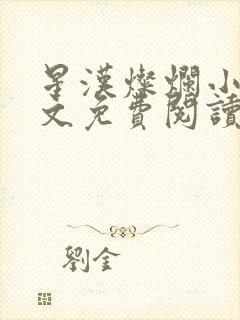 星漢燦爛小
文免費閱讀
劉金